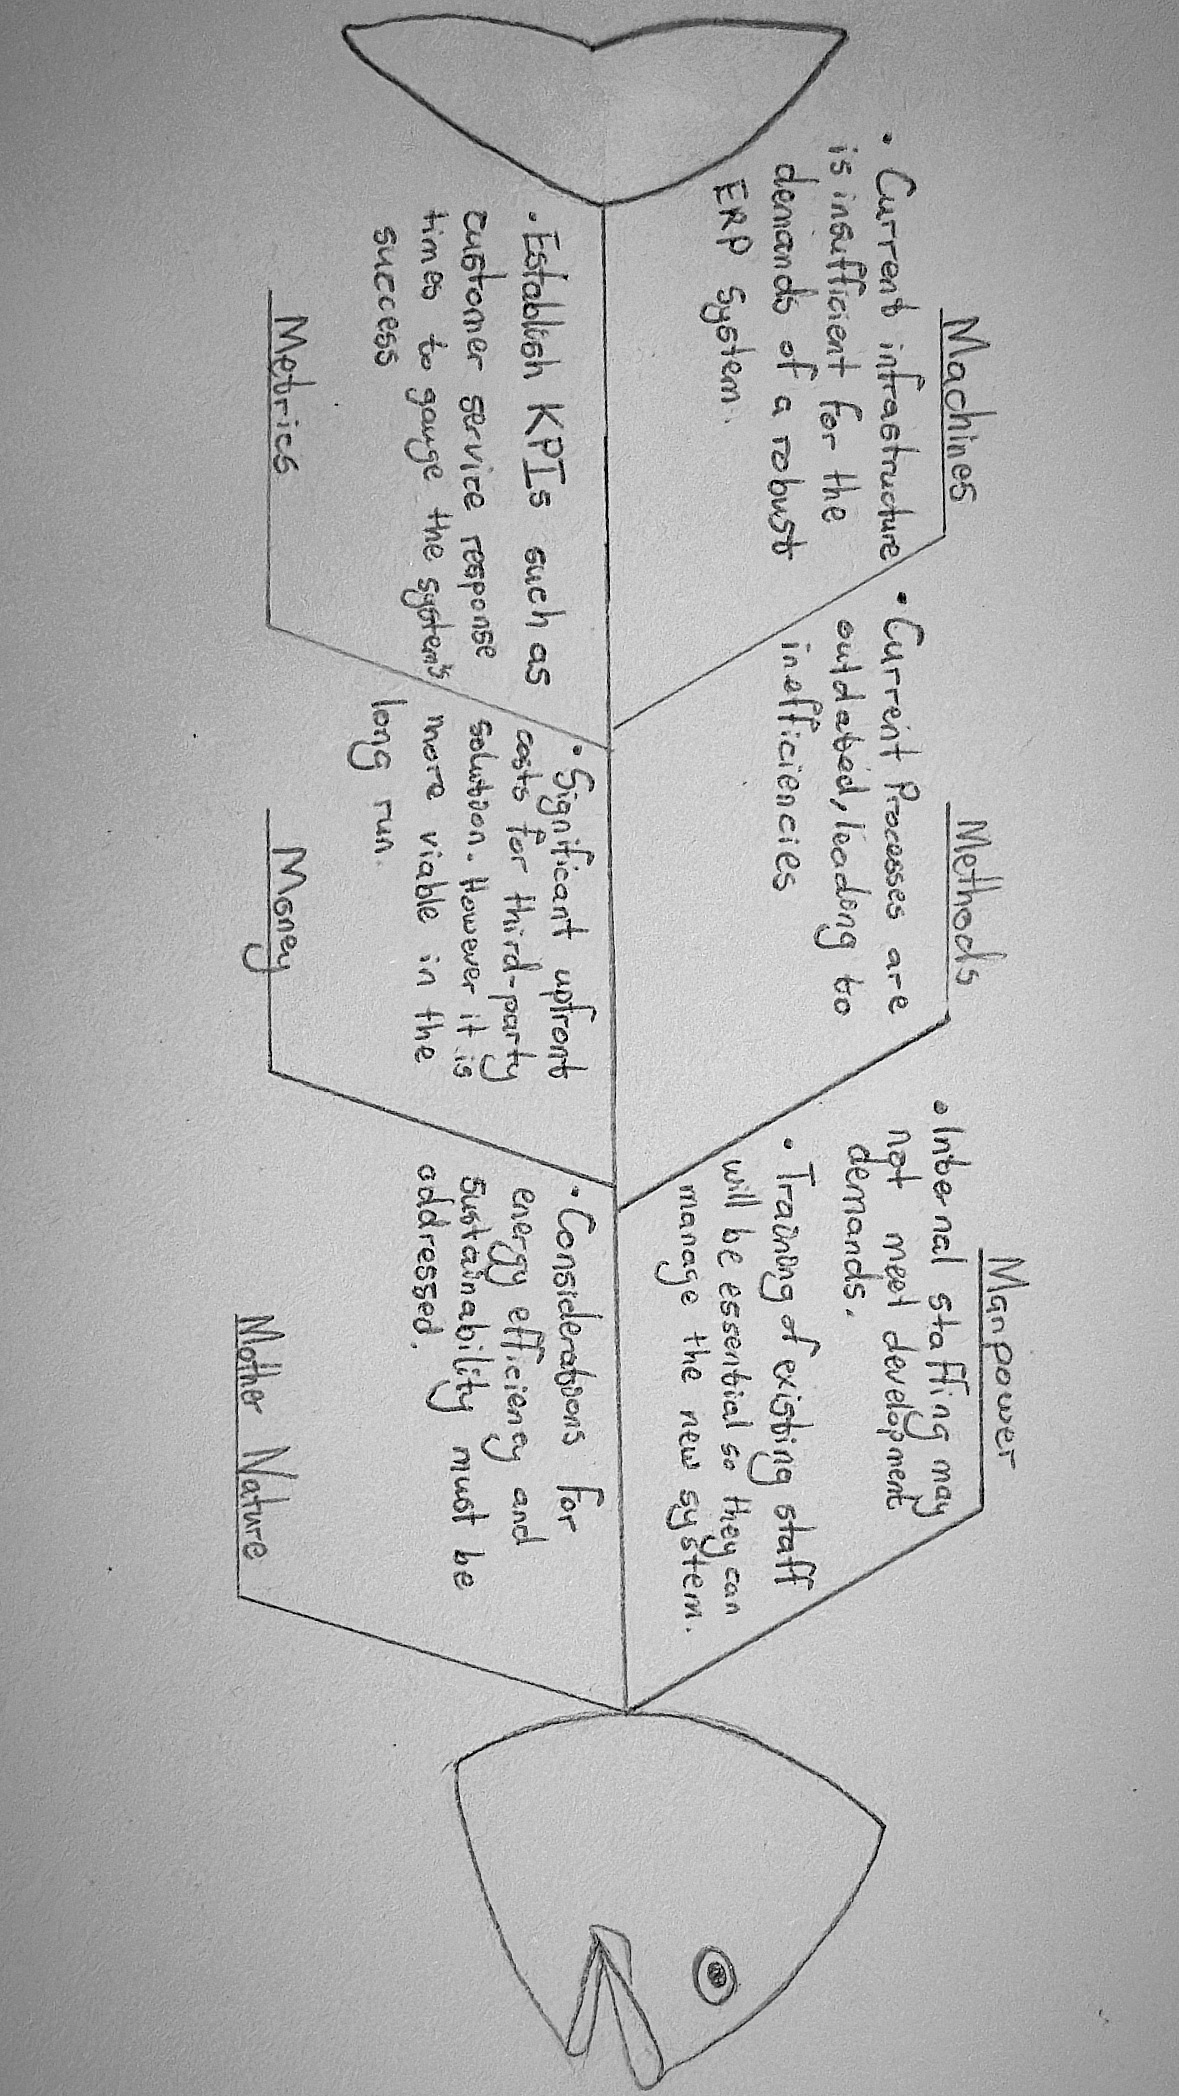 Machines
• Current infrastructure
is insufficient for the
demands of a robust
ERP system.
Methods
• Current Processes are
outdated, leading to
inefficiencies
Manpower
• Internal staffing may
not meet development
demands.
• Training of existing staff
will be essential so they can
manage the new system.
• Establish KPIs such as
customer service response
times to gauge the system's
success
Metrics
• Significant upfront
costs for third-party
solution. However it is
more viable in the
long run.
Money
• Considerations for
energy efficiency and
Sustainability must be
addressed.
Mother Nature